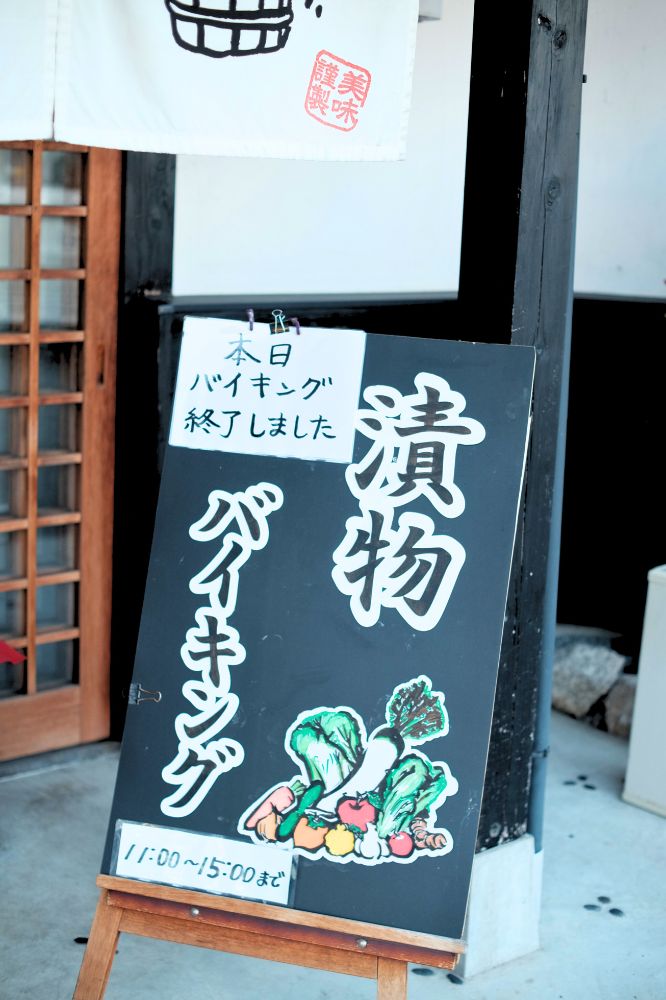 美味
謹製
本日
バイキング
終了しました
漬物
バイキング
11:00～15:00まで